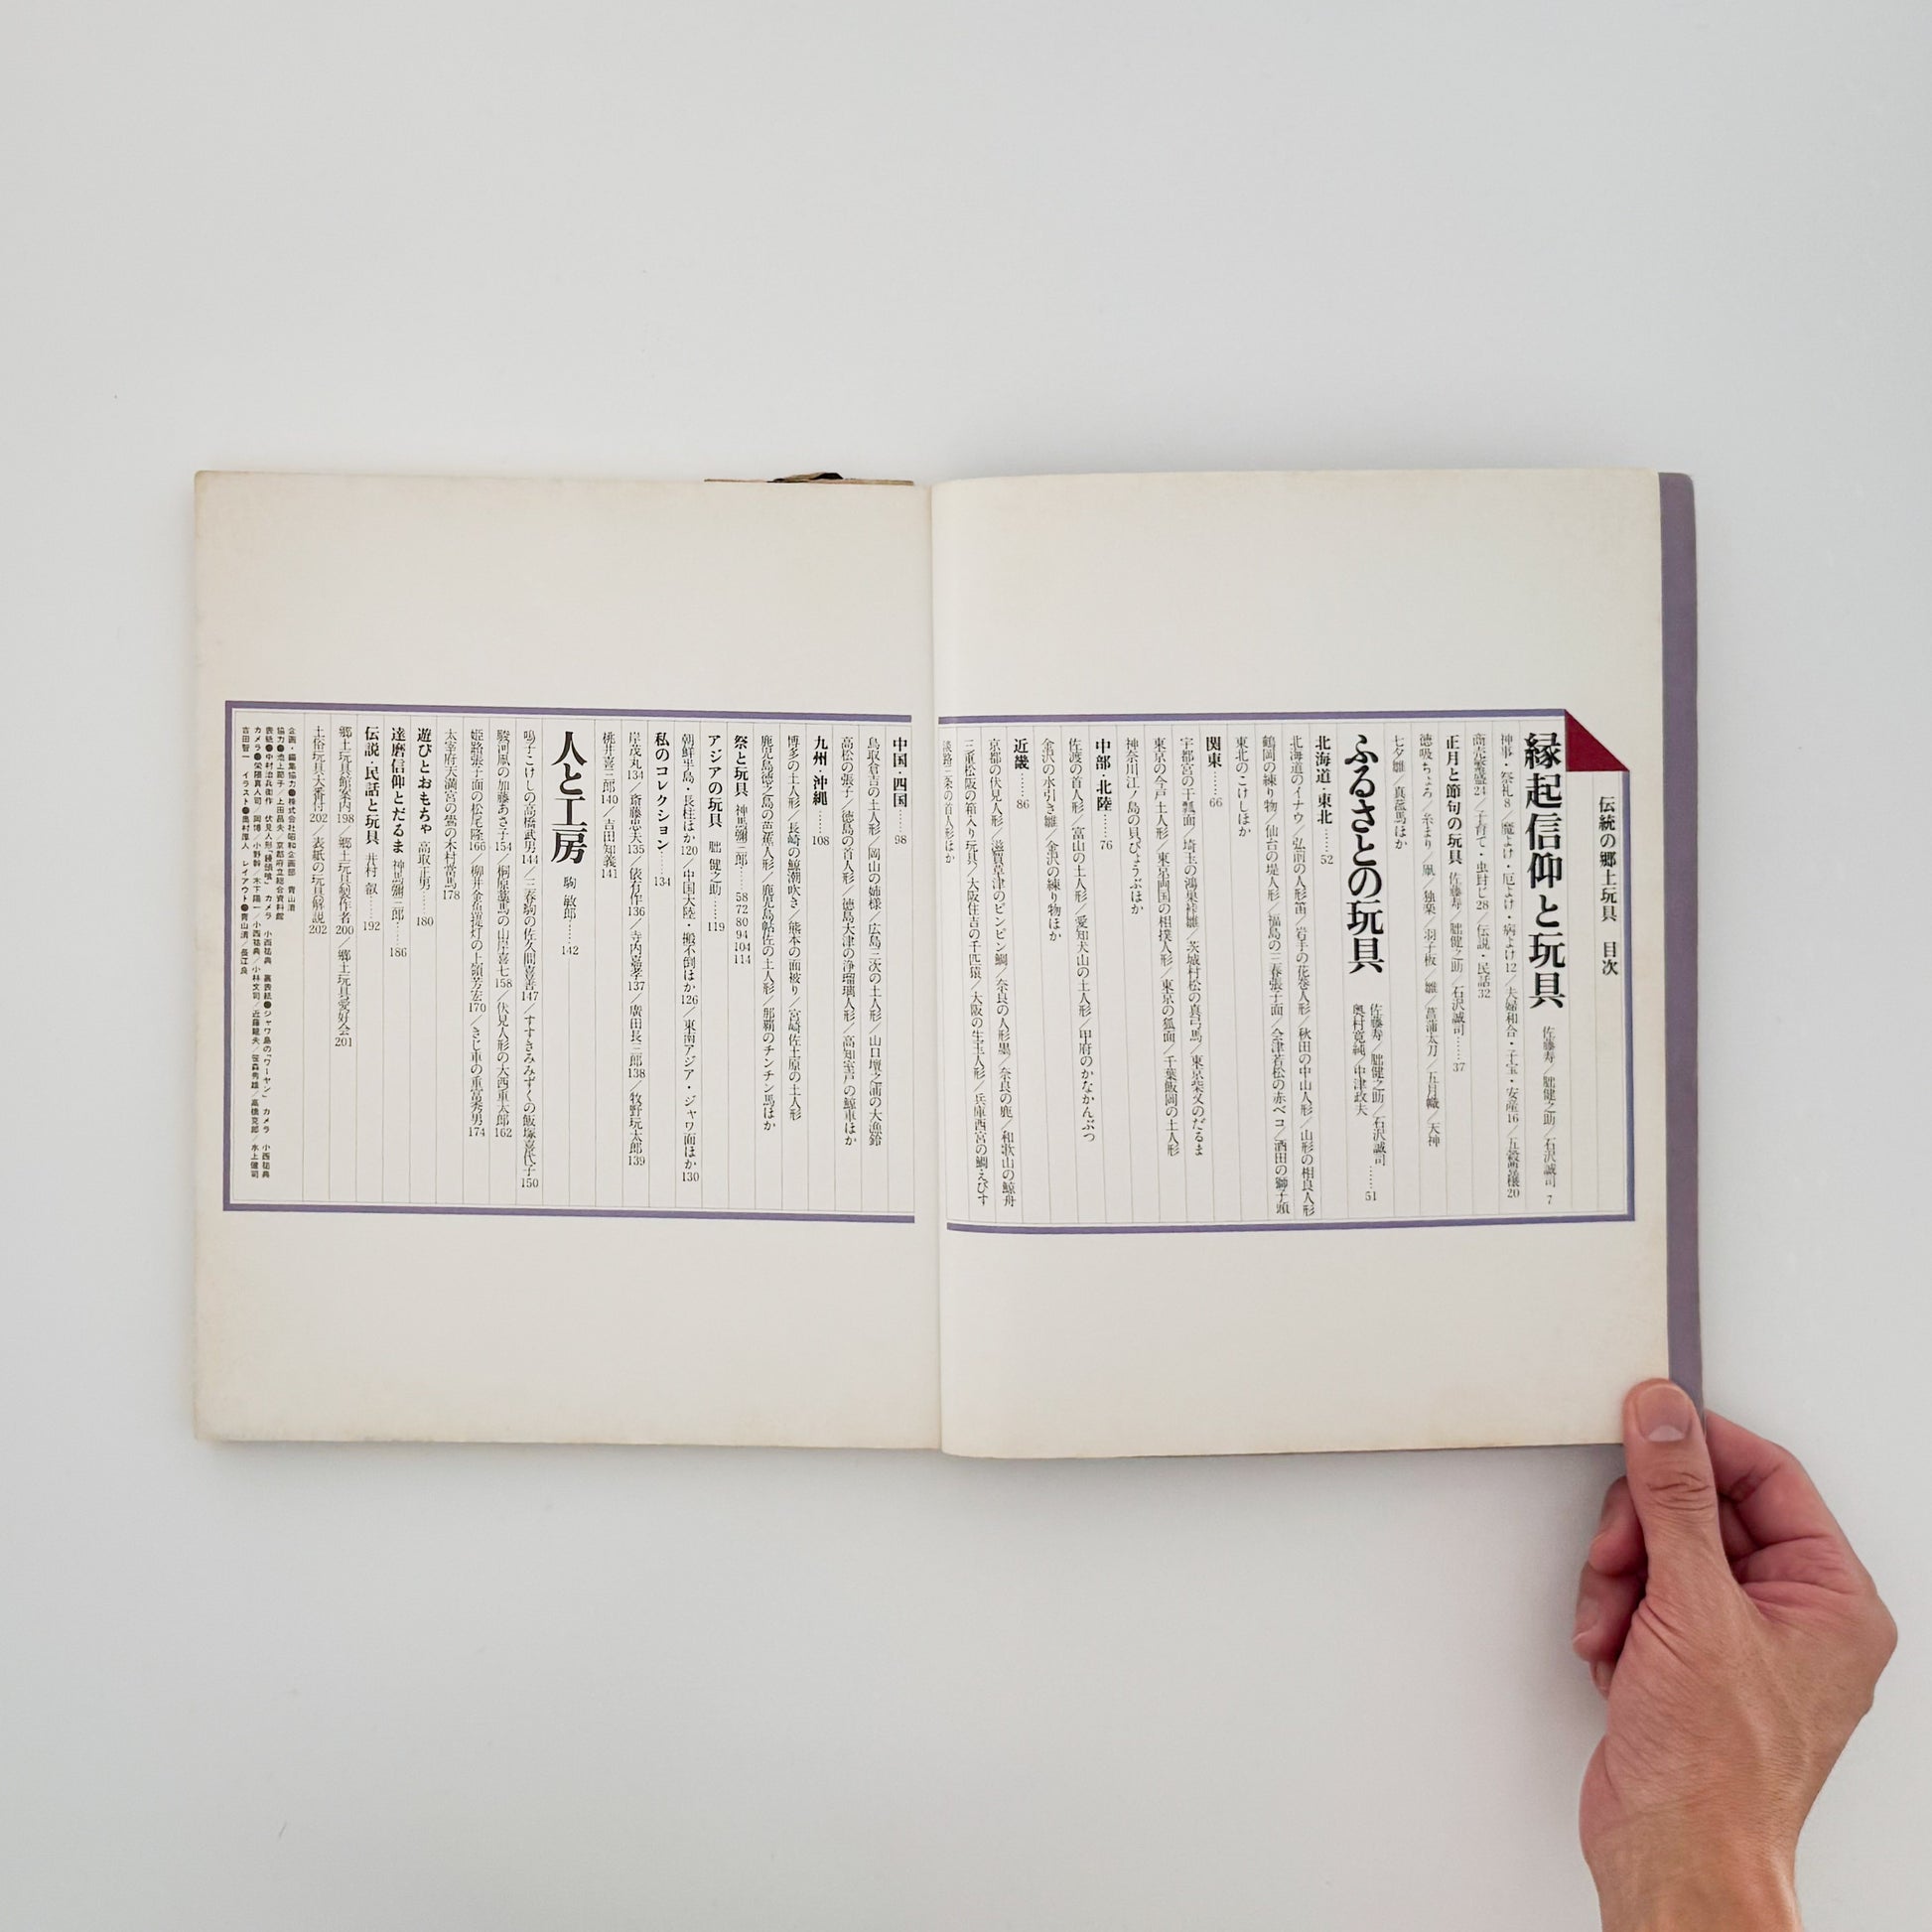 伝統の郷土玩具　目次
縁起信仰と玩具　佐藤寿／朏健之助／石沢誠司　7
神事・祭礼8／魔よけ・厄よけ・病よけ12／夫婦和合・子宝・安産16／五穀豊穣20
商売繁盛24／子育て・虫封じ28／伝説・民話32
正月と節句の玩具　佐藤寿／朏健之助／石沢誠司……37
徳吸ちょろ／糸まり／凧／独楽／羽子板／雛／菖蒲太刀／五月幟／天神
七夕雛／真菰馬ほか
ふるさとの玩具　佐藤寿／朏健之助／石沢誠司
奥村寛純／中津政夫　……51
北海道・東北……52
北海道のイナウ／弘前の人形笛／岩手の花巻人形／秋田の中山人形／山形の相良人形
鶴岡の練り物／仙台の堤人形／福島の三春張子面／会津若松の赤ベコ／酒田の獅子頭
東北のこけしほか
関東……66
宇都宮の干瓢面／埼玉の鴻巣裃雛／茨城村松の真弓馬／東京柴又のだるま
東京の今戸土人形／東京両国の相撲人形／東京の狐面／千葉飯岡の土人形
神奈川江ノ島の貝びょうぶほか
中部・北陸……76
佐渡の首人形／富山の土人形／愛知犬山の土人形／甲府のかなかんぶつ
金沢の水引き雛／金沢の練り物ほか
近畿……86
京都の伏見人形／滋賀草津のピンピン鯛／奈良の人形墨／奈良の鹿／和歌山の鯨舟
三重松阪の箱入り玩具／大阪住吉の千匹猿／大阪の生玉人形／兵庫西宮の鯛えびす
淡路三条の首人形ほか
中国・四国……98
鳥取倉吉の土人形／岡山の姉様／広島三次の土人形／山口壇之浦の大漁鈴
高松の張子／徳島の首人形／徳島大津の浄瑠璃人形／高知室戸の鯨車ほか
九州・沖縄……108
博多の土人形／長崎の鯨潮吹き／熊本の面被り／宮崎佐土原の土人形
鹿児島徳之島の芭蕉人形／鹿児島帖佐の土人形／那覇のチンチン馬ほか
祭と玩具　神馬彌三郎……58 72 80 94 104 114
アジアの玩具　朏　健之助……119
朝鮮半島・長柱ほか120／中国大陸・搬不倒ほか126／東南アジア・ジャワ面ほか130
私のコレクション……134
岸茂丸134／斎藤忠夫135／俵有作136／寺内嘉孝137／廣田長三郎138／牧野玩太郎139
桃井喜三郎140／吉田知義141
人と工房　駒　敏郎……142
鳴子こけしの高橋武男144／三春駒の佐久間喜善147／すすきみみずくの飯塚喜代子150
駿河凧の加藤あさ子154／桐原藁馬の山岸喜七158／伏見人形の大西重太郎162
姫路張子面の松尾隆166／柳井金魚提灯の上領芳宏170／きじ車の重富秀男174
太宰府天満宮の鷽の木村常馬178
遊びとおもちゃ　高取正男……180
達磨信仰とだるま　神馬彌三郎……186
伝説・民話と玩具　井村　叡……192
郷土玩具館案内198／郷土玩具製作者200／郷土玩具愛好会201
土俗玩具大番付202／表紙の玩具解説202
企画・編集協力●株式会社昭和企画部　青山清
協力●池上範子／上田昌夫／京都府立総合資料館
表紙●中村治兵衛作　伏見人形「饅頭喰」　カメラ　小西祐典　裏表紙●ジャワ島の「ワーヤン」　カメラ　小西祐典
カメラ●栄隈貫人司／岡博／小野幹／木下陽一／小西祐典／小林文司／近藤龍夫／笹森秀雄／高橋克郎／水上健司
吉田智一　イラスト●奥村厚人　レイアウト●青山清／長江良